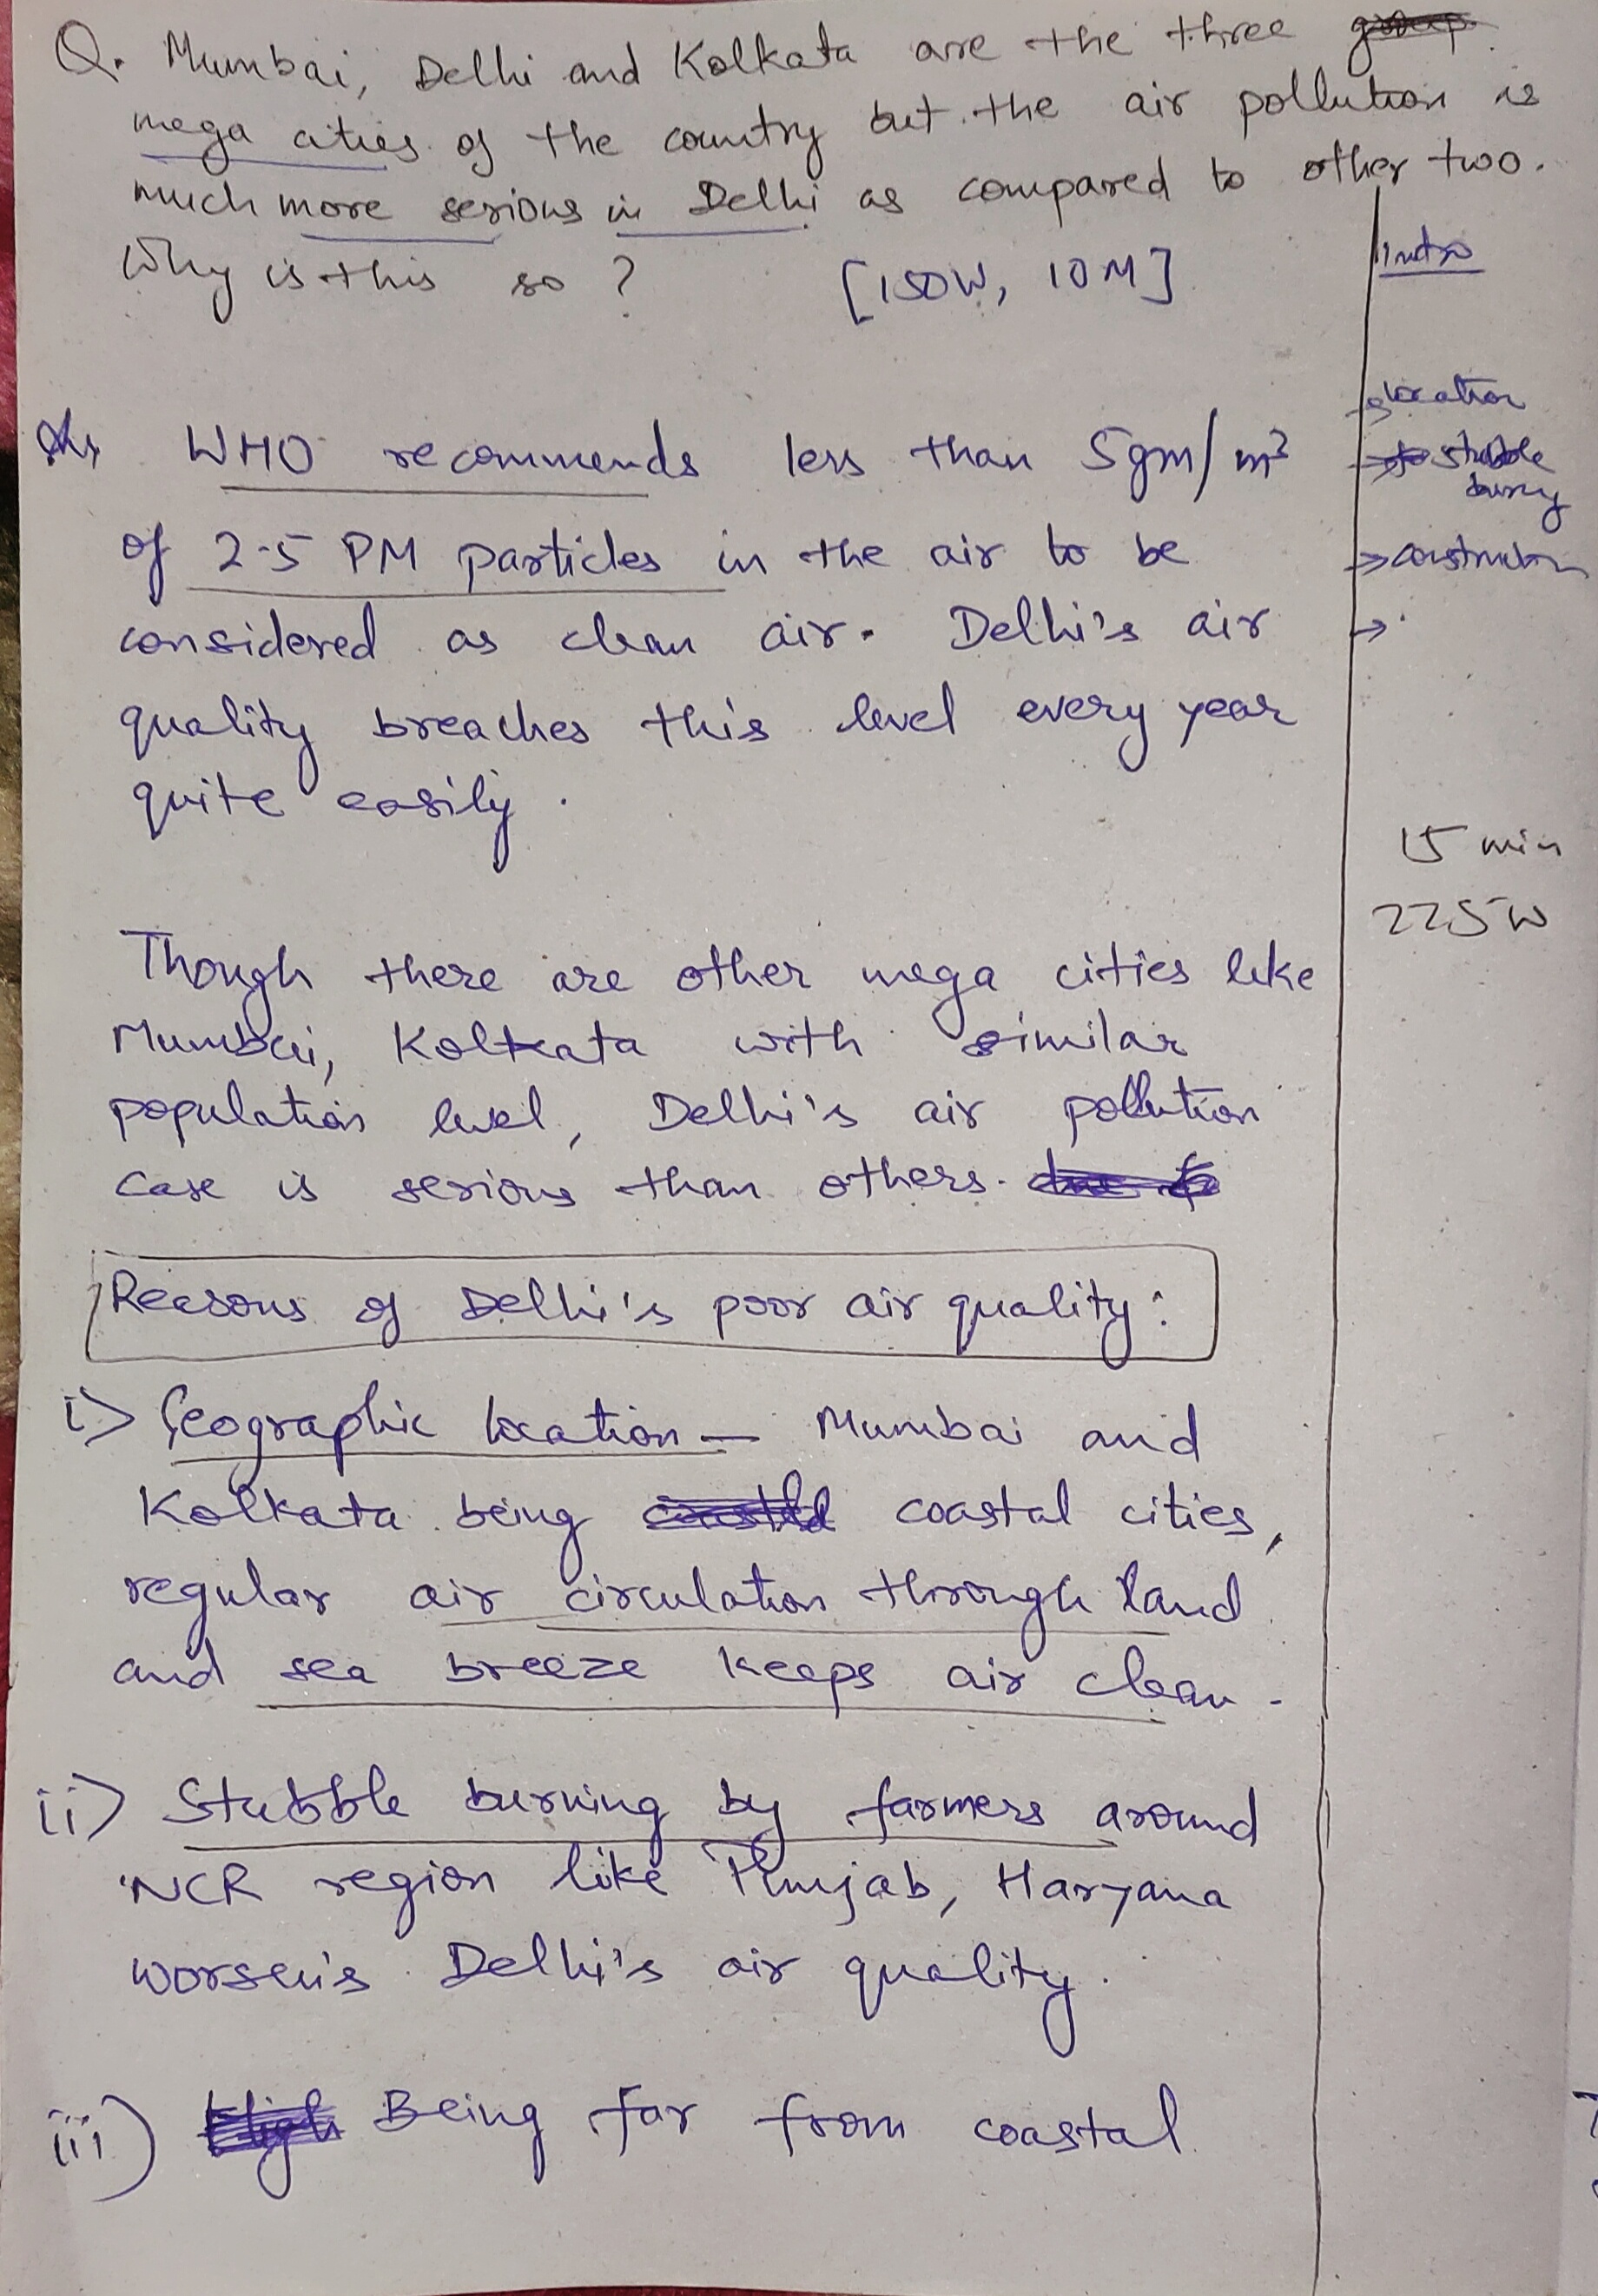 Q. Mumbai, Delhi and Kolkata are the three
mega cities of the country but the air pollution is
much more serious in Delhi as compared to other two.
Why is this so ? [150W, 10M]
Intro
location
WHO recommends less than 5gm/m³
stubble
burning
of 2.5 PM particles in the air to be
construction
considered as clean air. Delhi's air
quality breaches this level every year
quite easily.
15 min
225W
Though there are other mega cities like
Mumbai, Kolkata with similar
population level, Delhi's air pollution
case is serious than others.
Reasons of Delhi's poor air quality:
i) Geographic location — Mumbai and
Kolkata being coastal cities,
regular air circulation through land
and sea breeze keeps air clean.
ii) Stubble burning by farmers around
NCR region like Punjab, Haryana
worsen's Delhi's air quality.
iii) Being far from coastal